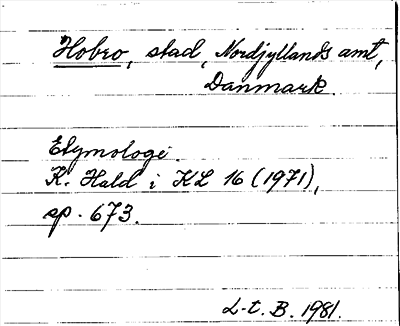 Hobro, stad, Nordjyllands amt,
Danmark.
Etymologi.
K. Hald i KL 16 (1971),
sp. 673.
L-t. B. 1981.